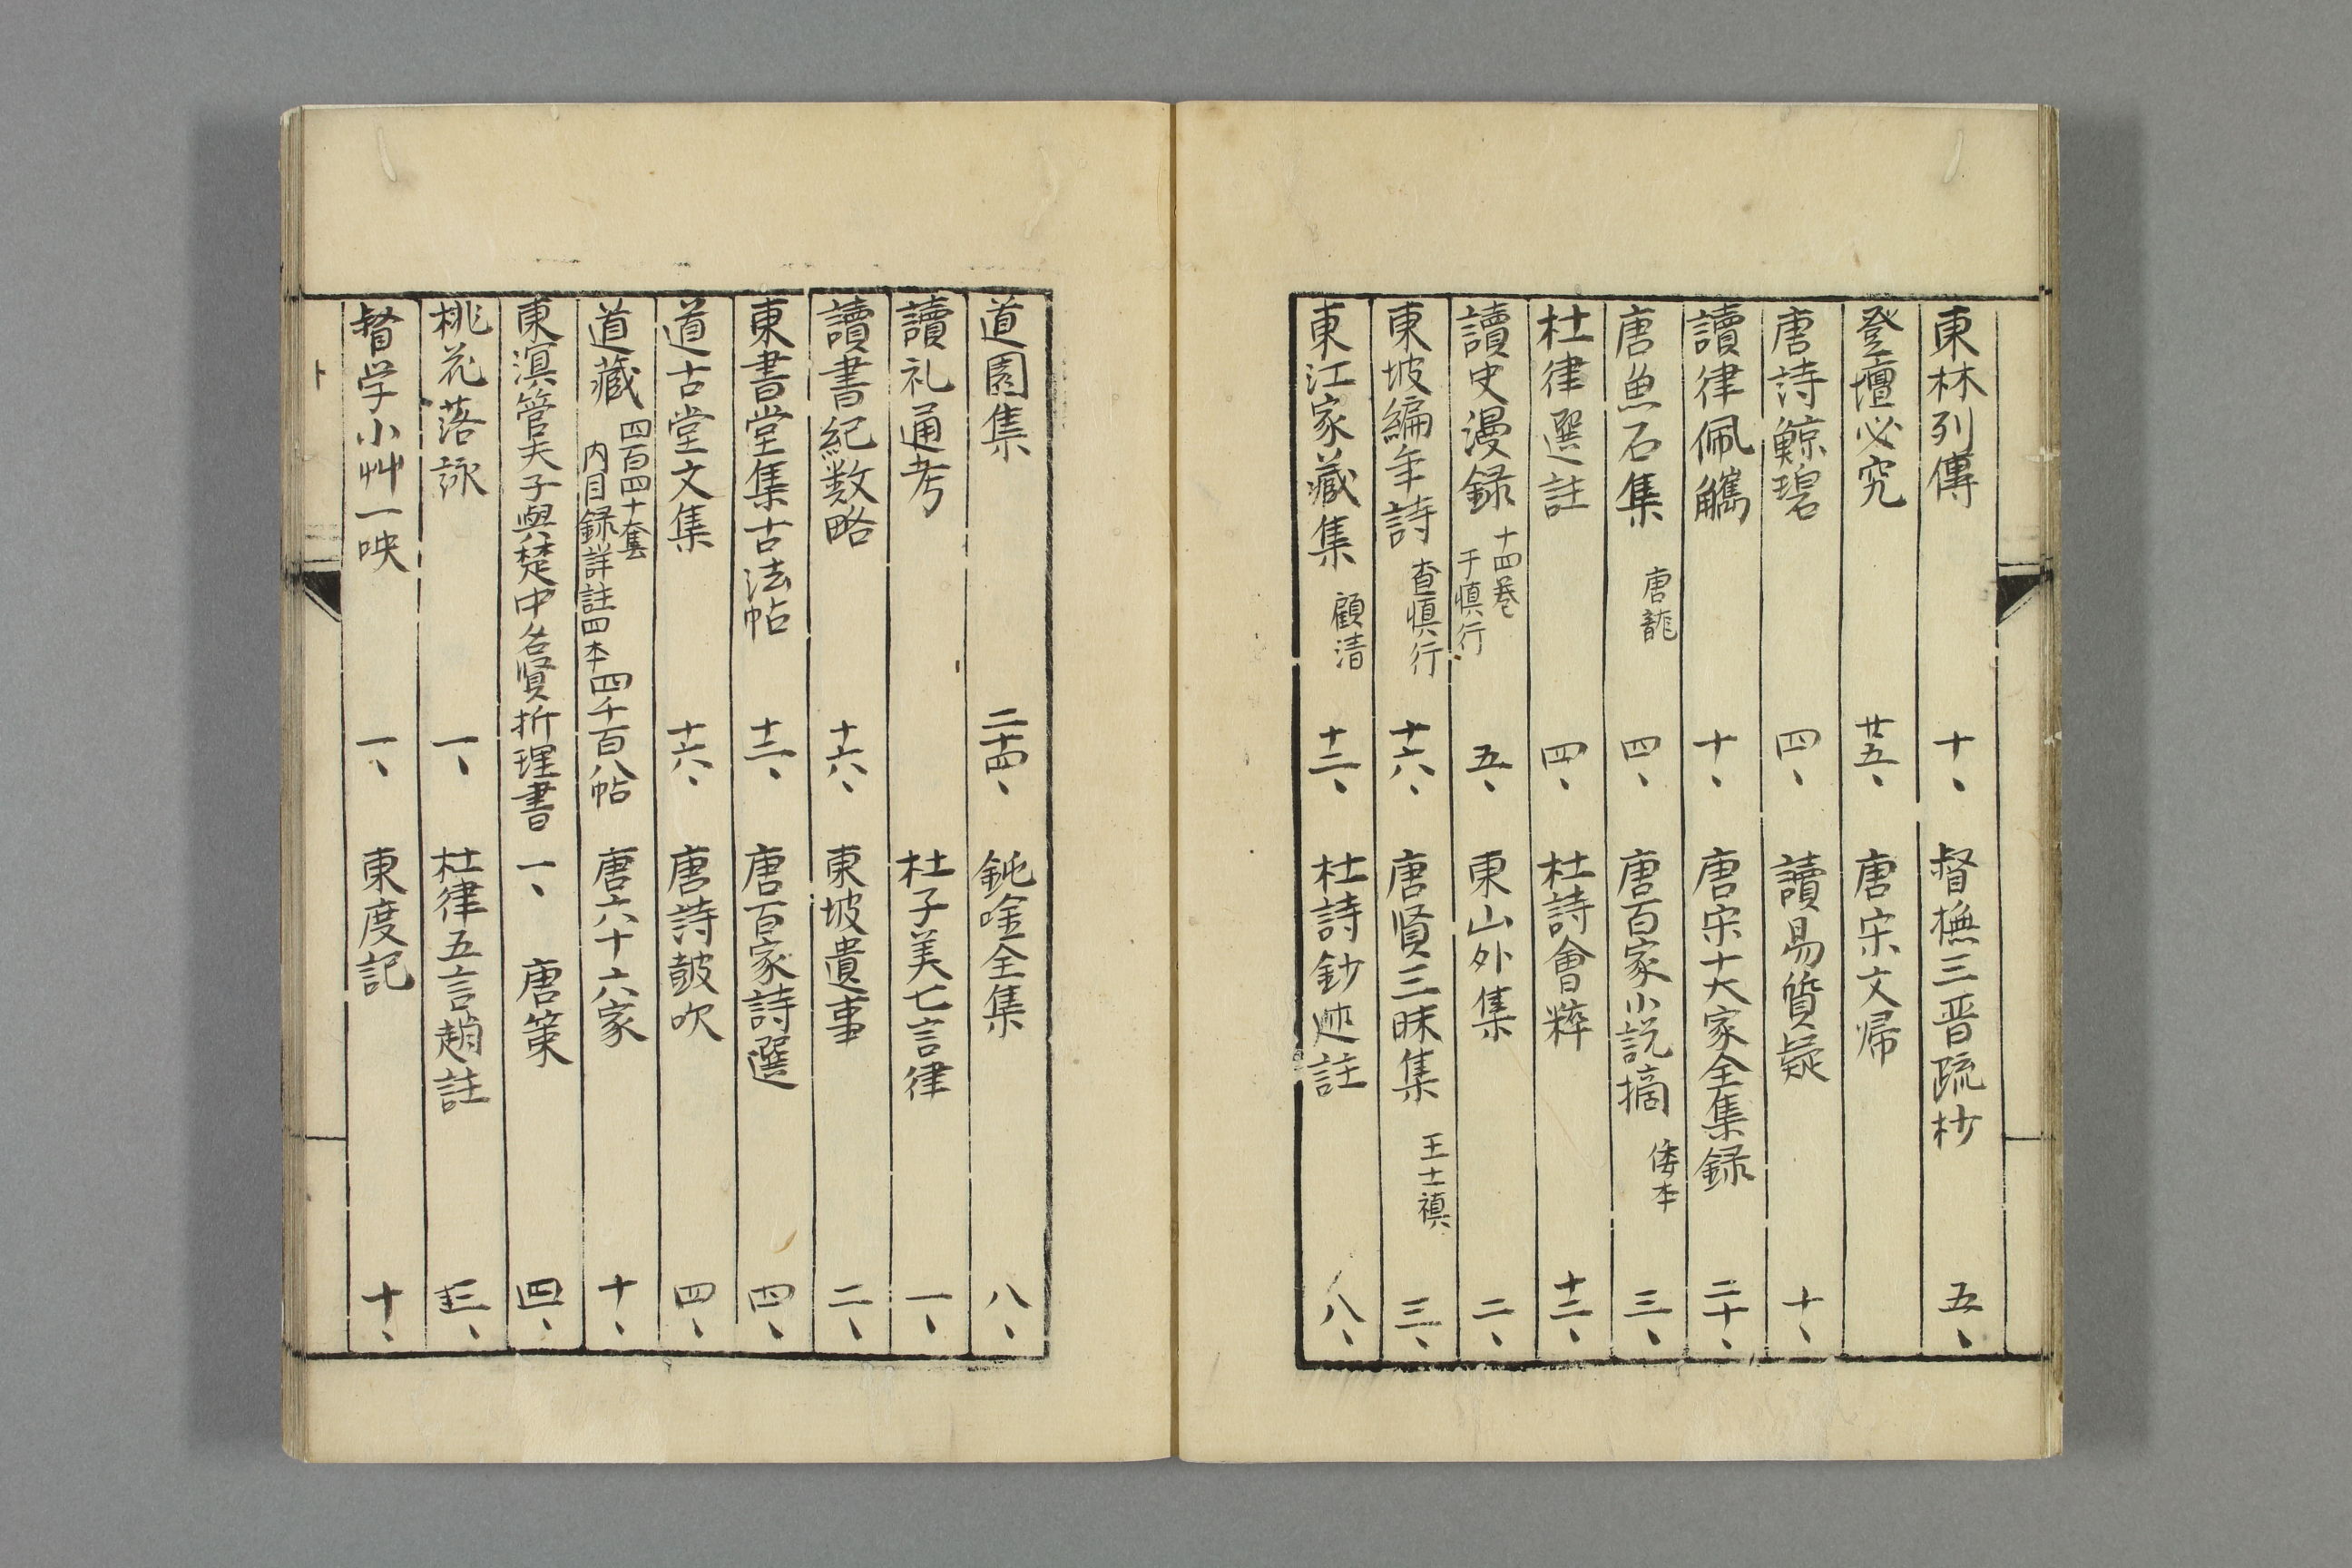 東林列傳 十、 督撫三晋疏抄 五、
登壇必究 廿五、 唐宋文歸
唐詩鯨碧 四、 讀易質疑 十、
讀律佩觿 十、 唐宋十大家全集録 二十、
唐魚石集 唐龍 四、 唐百家小説摘 倭本 三、
杜律選註 四、 杜詩會粹 十二、
讀史漫録 十四巻 于慎行 五、 東山外集 二、
東坡編年詩 査慎行 十六、 唐賢三昧集 王士禛 三、
東江家藏集 顧清 十二、 杜詩鈔述註 八、
道園集 二十四、 鈍唫全集 八、
讀礼通考 杜子美七言律 一、
讀書紀数略 十六、 東坡遺事 二、
東書堂集古法帖 十二、 唐百家詩選 四、
道古堂文集 十六、 唐詩皷吹 四、
道藏 四百四十套 内目録詳註四本 四千百八帖 唐六十六家 十、
東溟管夫子與楚中名賢折理書 一、 唐策 四、
桃花落詠 一、 杜律五言趙註 三、
督学小艸一映 一、 東度記 十、
ト